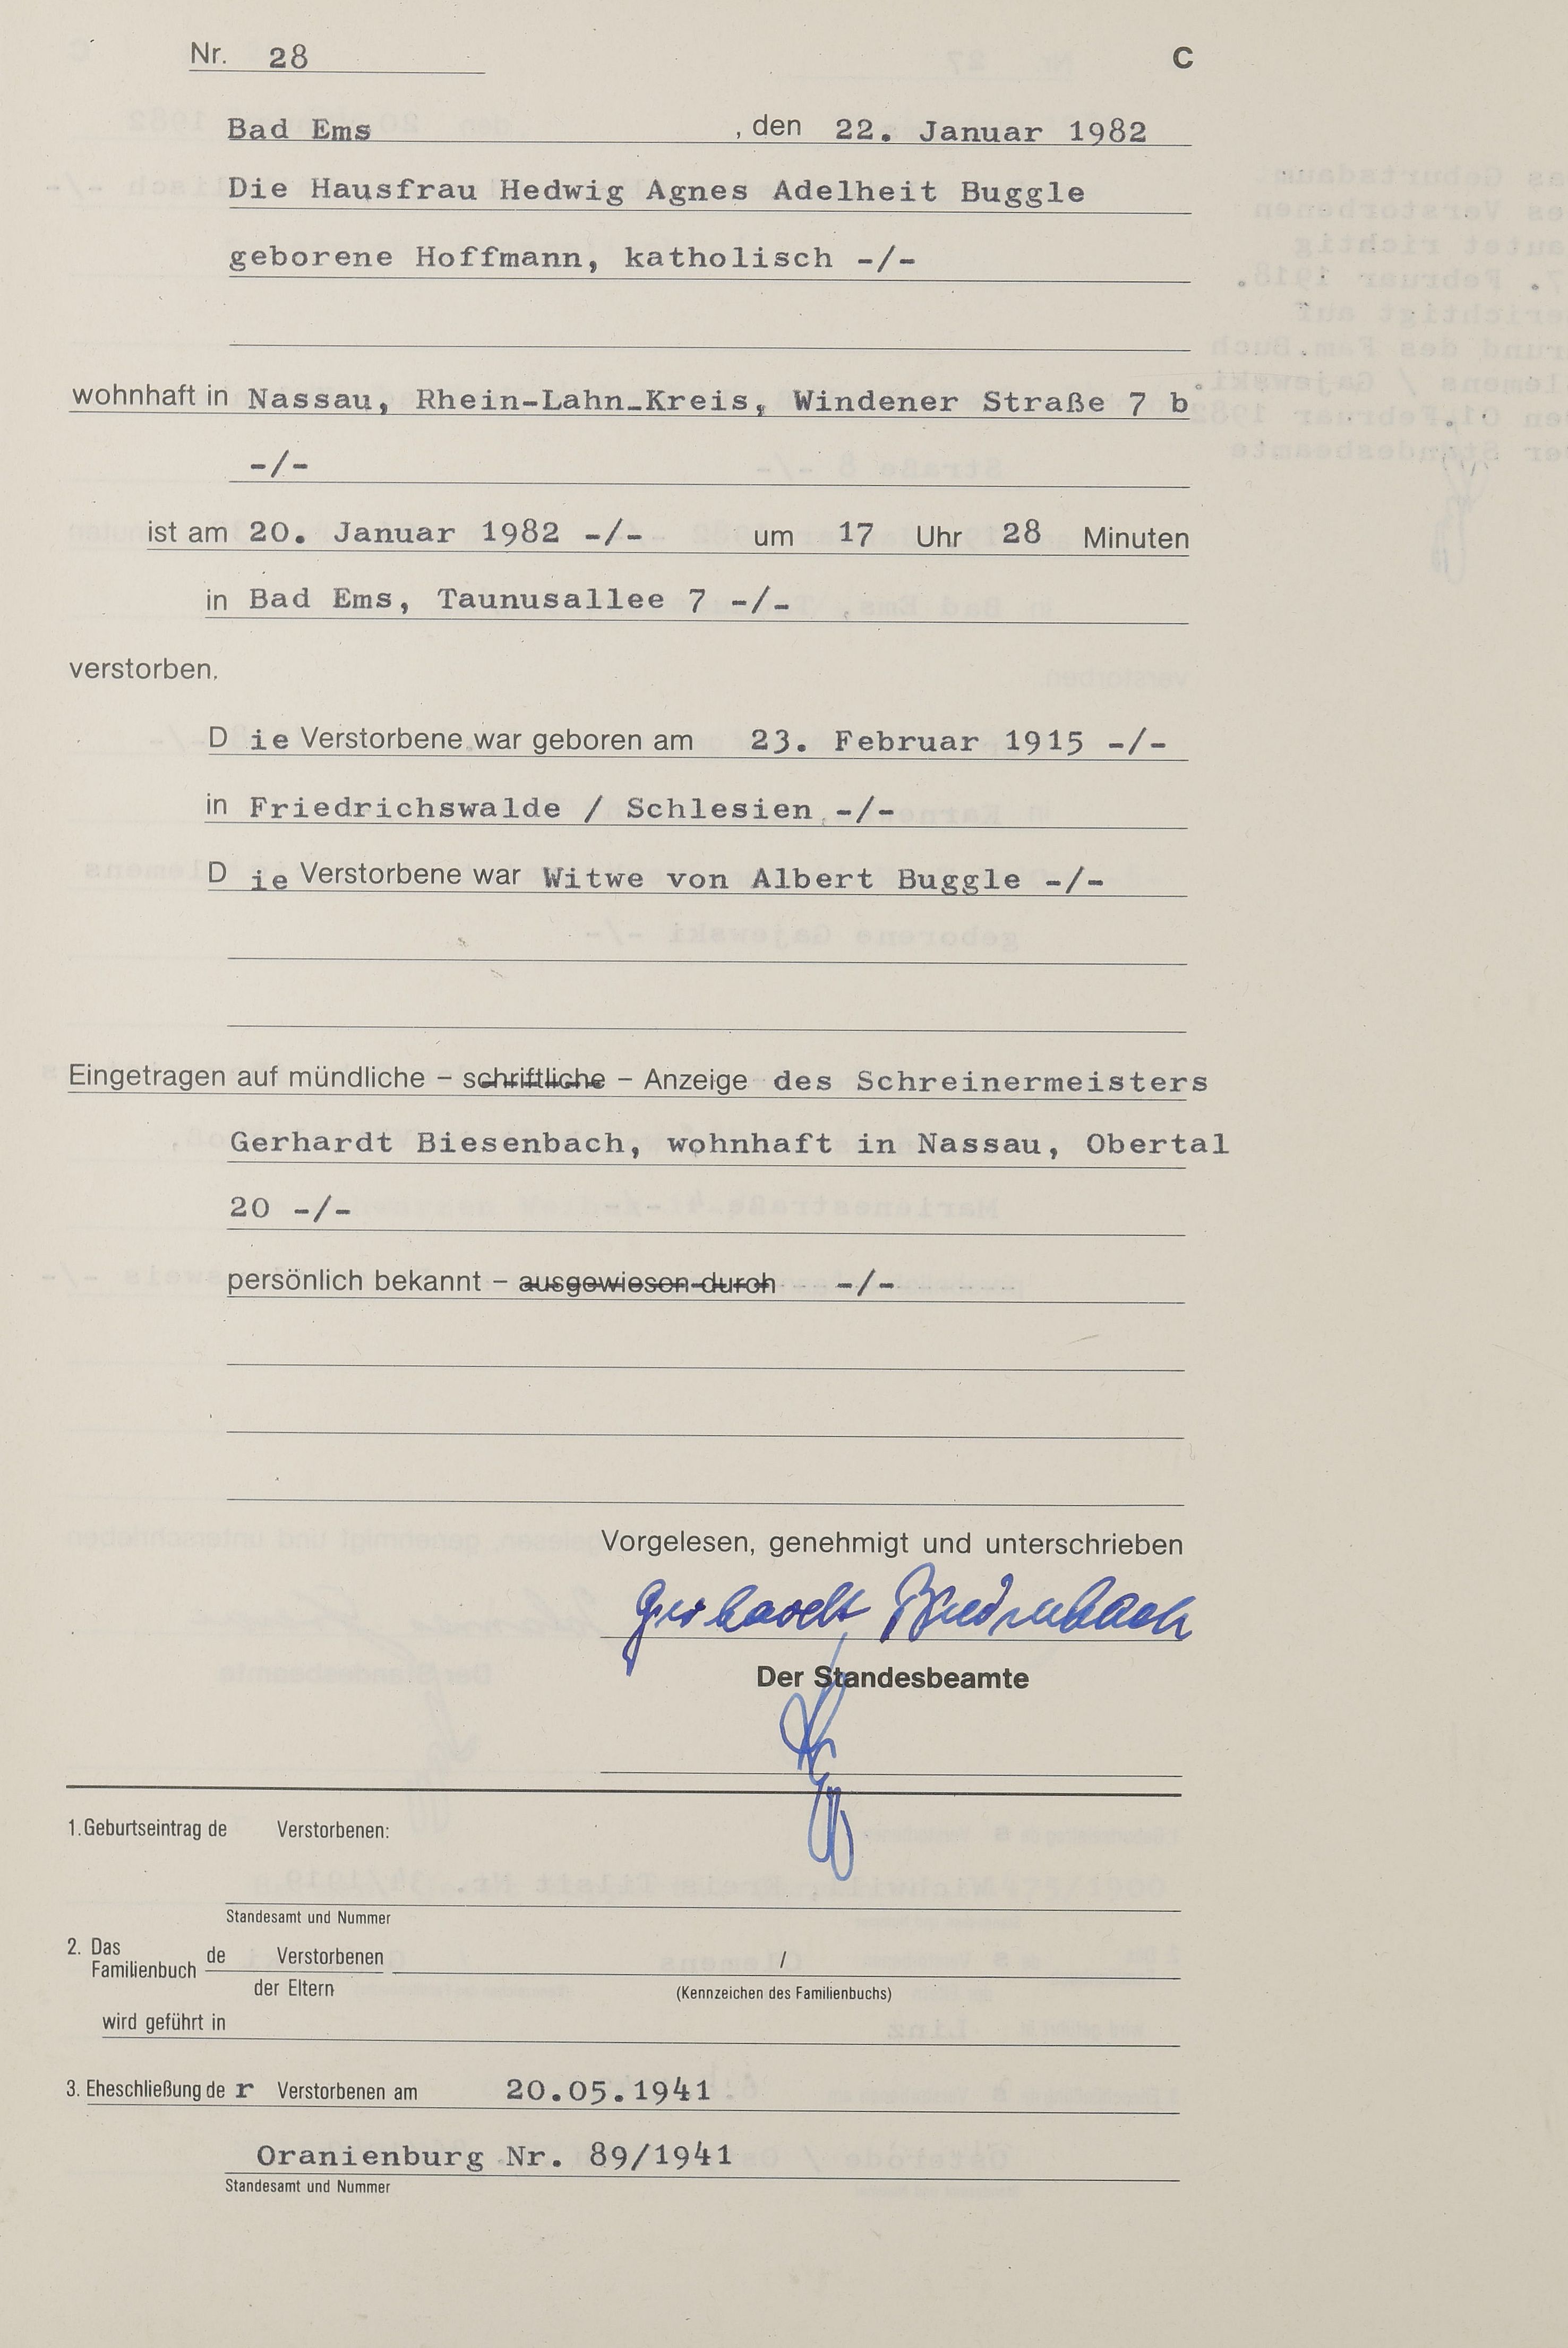 Nr. 28 C
Bad Ems , den 22. Januar 1982
Die Hausfrau Hedwig Agnes Adelheit Buggle
geborene Hoffmann, katholisch -/-
wohnhaft in Nassau, Rhein-Lahn-Kreis, Windener Straße 7 b
-/-
ist am 20. Januar 1982 -/- um 17 Uhr 28 Minuten
in Bad Ems, Taunusallee 7 -/-
verstorben.
D ie Verstorbene war geboren am 23. Februar 1915 -/-
in Friedrichswalde / Schlesien -/-
D ie Verstorbene war Witwe von Albert Buggle -/-
Eingetragen auf mündliche – schriftliche – Anzeige des Schreinermeisters
Gerhardt Biesenbach, wohnhaft in Nassau, Obertal
20 -/-
persönlich bekannt – ausgewiesen durch -/-
Vorgelesen, genehmigt und unterschrieben
Gerhardt Biesenbach
Der Standesbeamte
1. Geburtseintrag de Verstorbenen:
Standesamt und Nummer
2. Das Familienbuch de Verstorbenen /
der Eltern (Kennzeichen des Familienbuchs)
wird geführt in
3. Eheschließung de r Verstorbenen am 20.05.1941
Oranienburg Nr. 89/1941
Standesamt und Nummer